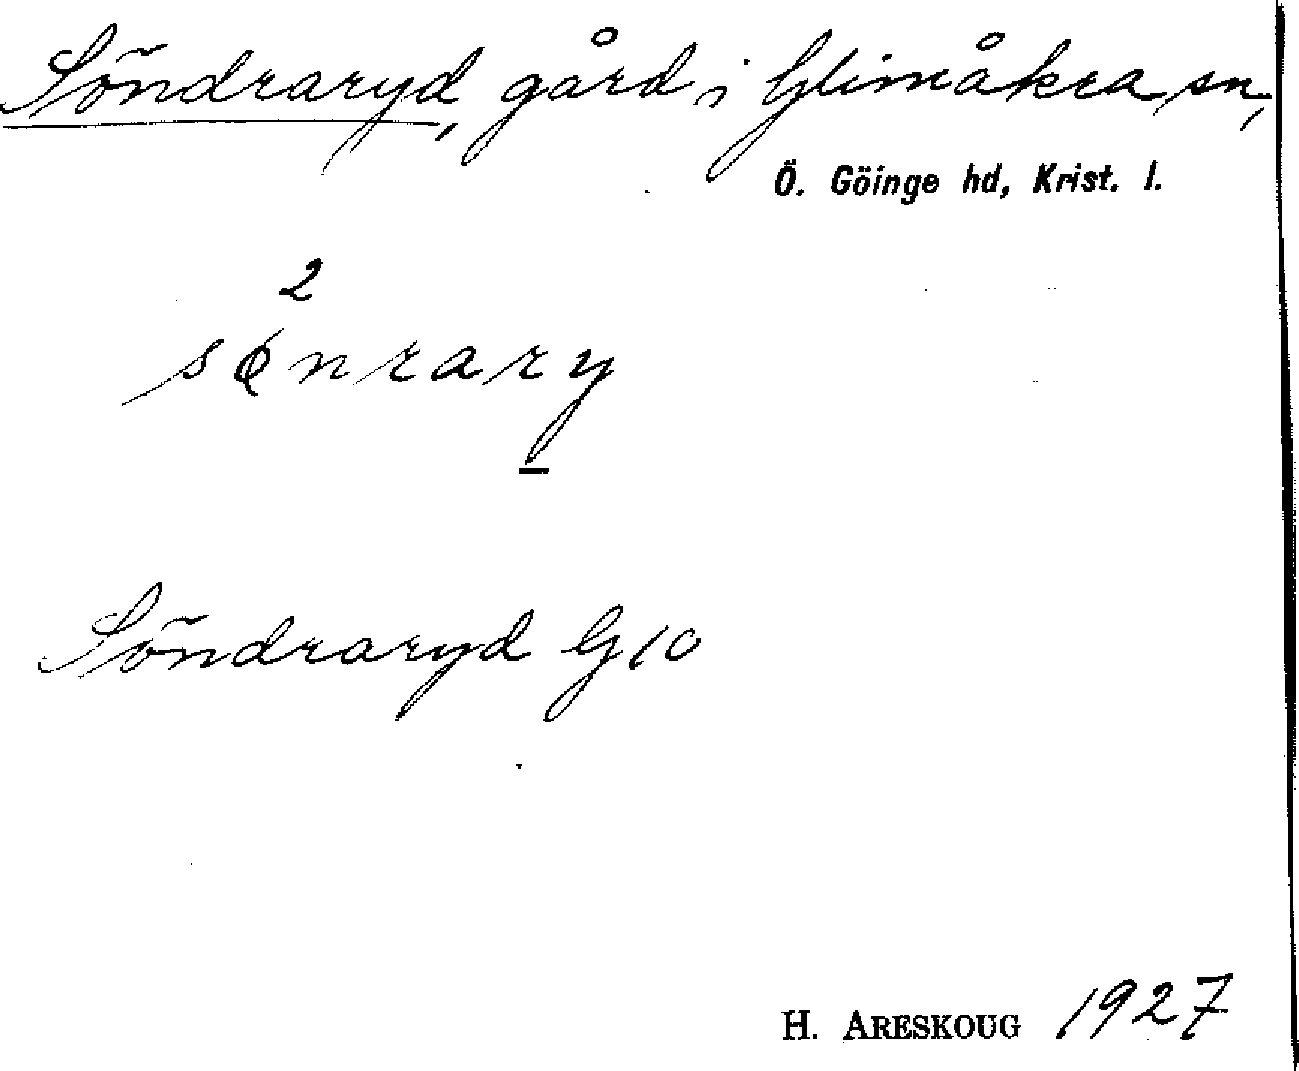 Söndraryd, gård i Glimåkra sn,
Ö. Göinge hd, Krist. l.
2
sønrary
Söndraryd G10
H. ARESKOUG 1927